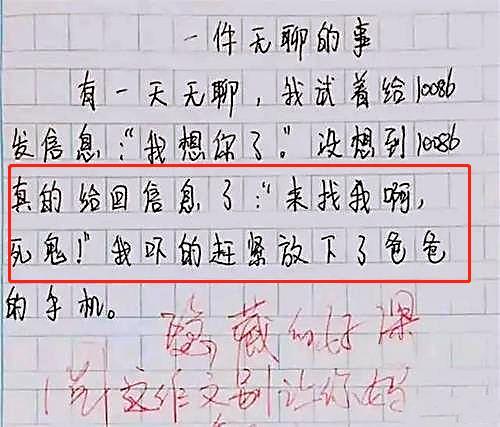 一件无聊的事
有一天无聊，我试着给10086
发信息：“我想你了。”没想到10086
真的给回信息了：“来找我啊，
死鬼！”我吓的赶紧放下了爸爸
的手机。
隐藏的好深
作文别让你妈